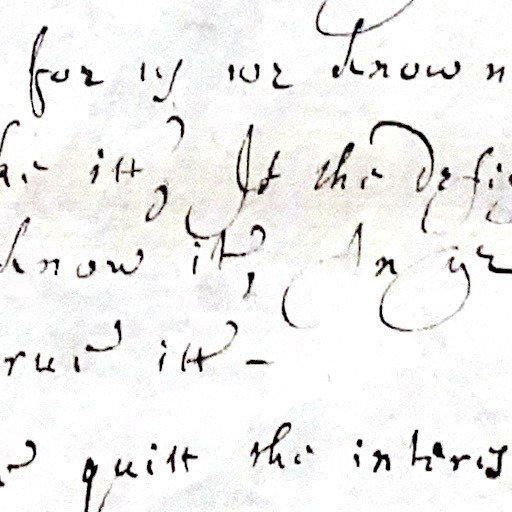 for us we know n
ke itt, It the desi
know it, In ye
rue itt -
quitt the interes